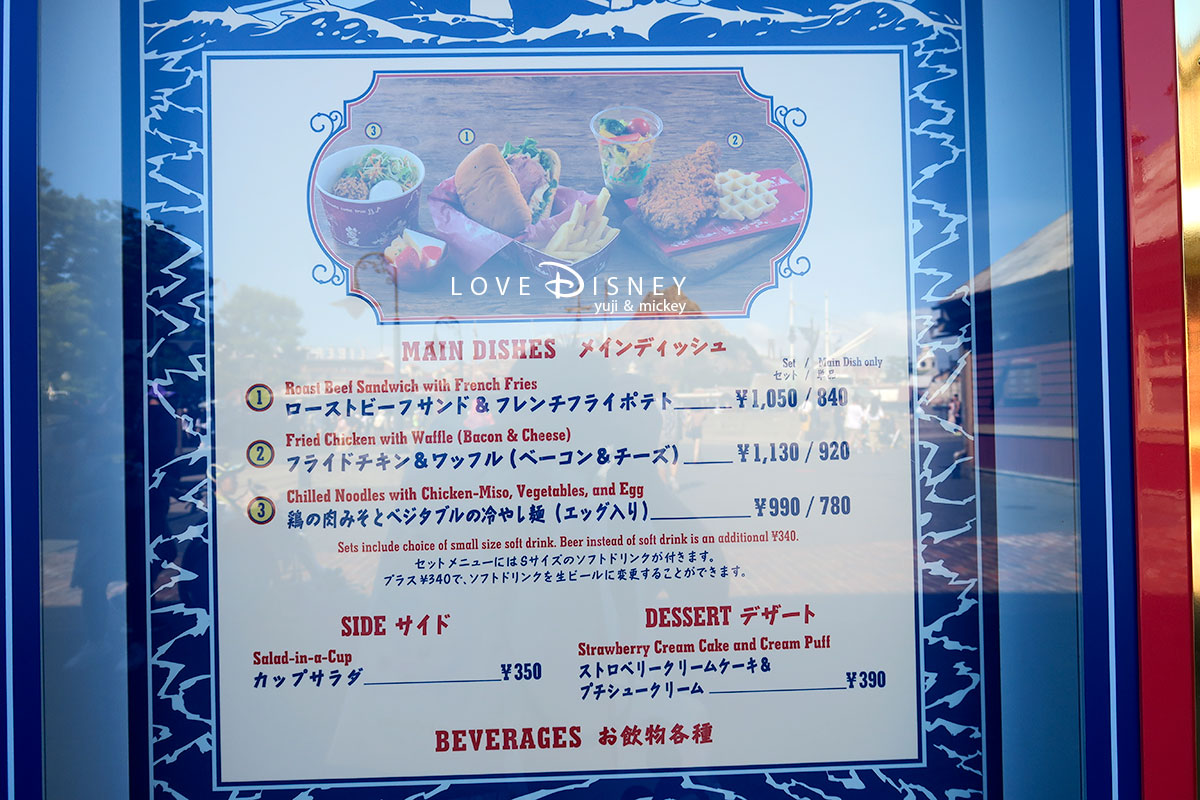 3
1
2
LOVE DISNEY
yuji & mickey
MAIN DISHES メインディッシュ
Set / Main Dish only
セット / 単品
1 Roast Beef Sandwich with French Fries
ローストビーフサンド&フレンチフライポテト ¥1,050 / 840
2 Fried Chicken with Waffle (Bacon & Cheese)
フライドチキン&ワッフル (ベーコン&チーズ) ¥1,130 / 920
3 Chilled Noodles with Chicken-Miso, Vegetables, and Egg
鶏の肉みそとベジタブルの冷やし麺 (エッグ入り) ¥990 / 780
Sets include choice of small size soft drink. Beer instead of soft drink is an additional ¥340.
セットメニューにはSサイズのソフトドリンクが付きます。
プラス¥340で、ソフトドリンクを生ビールに変更することができます。
SIDE サイド
Salad-in-a-Cup
カップサラダ ¥350
DESSERT デザート
Strawberry Cream Cake and Cream Puff
ストロベリークリームケーキ&
プチシュークリーム ¥390
BEVERAGES お飲物各種